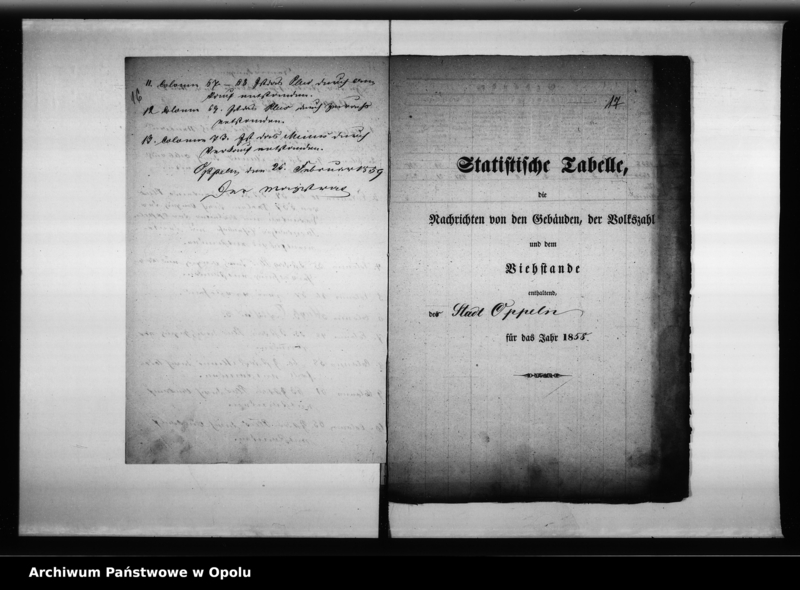 16
11. Colonne 67. – 68 Ist das Plus durch An-
kauf entstanden.
12. Colonne 69. Ist das Plus durch Zuzucht
entstanden.
13. Colonne 73. Ist das Minus durch
Verkauf entstanden.
Oppeln, den 26. Februar 1859
Der Magistrat
17
Statistische Tabelle,
die
Nachrichten von den Gebäuden, der Volkszahl
und dem
Viehstande
enthaltend,
der Stadt Oppeln
für das Jahr 1858.
Archiwum Państwowe w Opolu